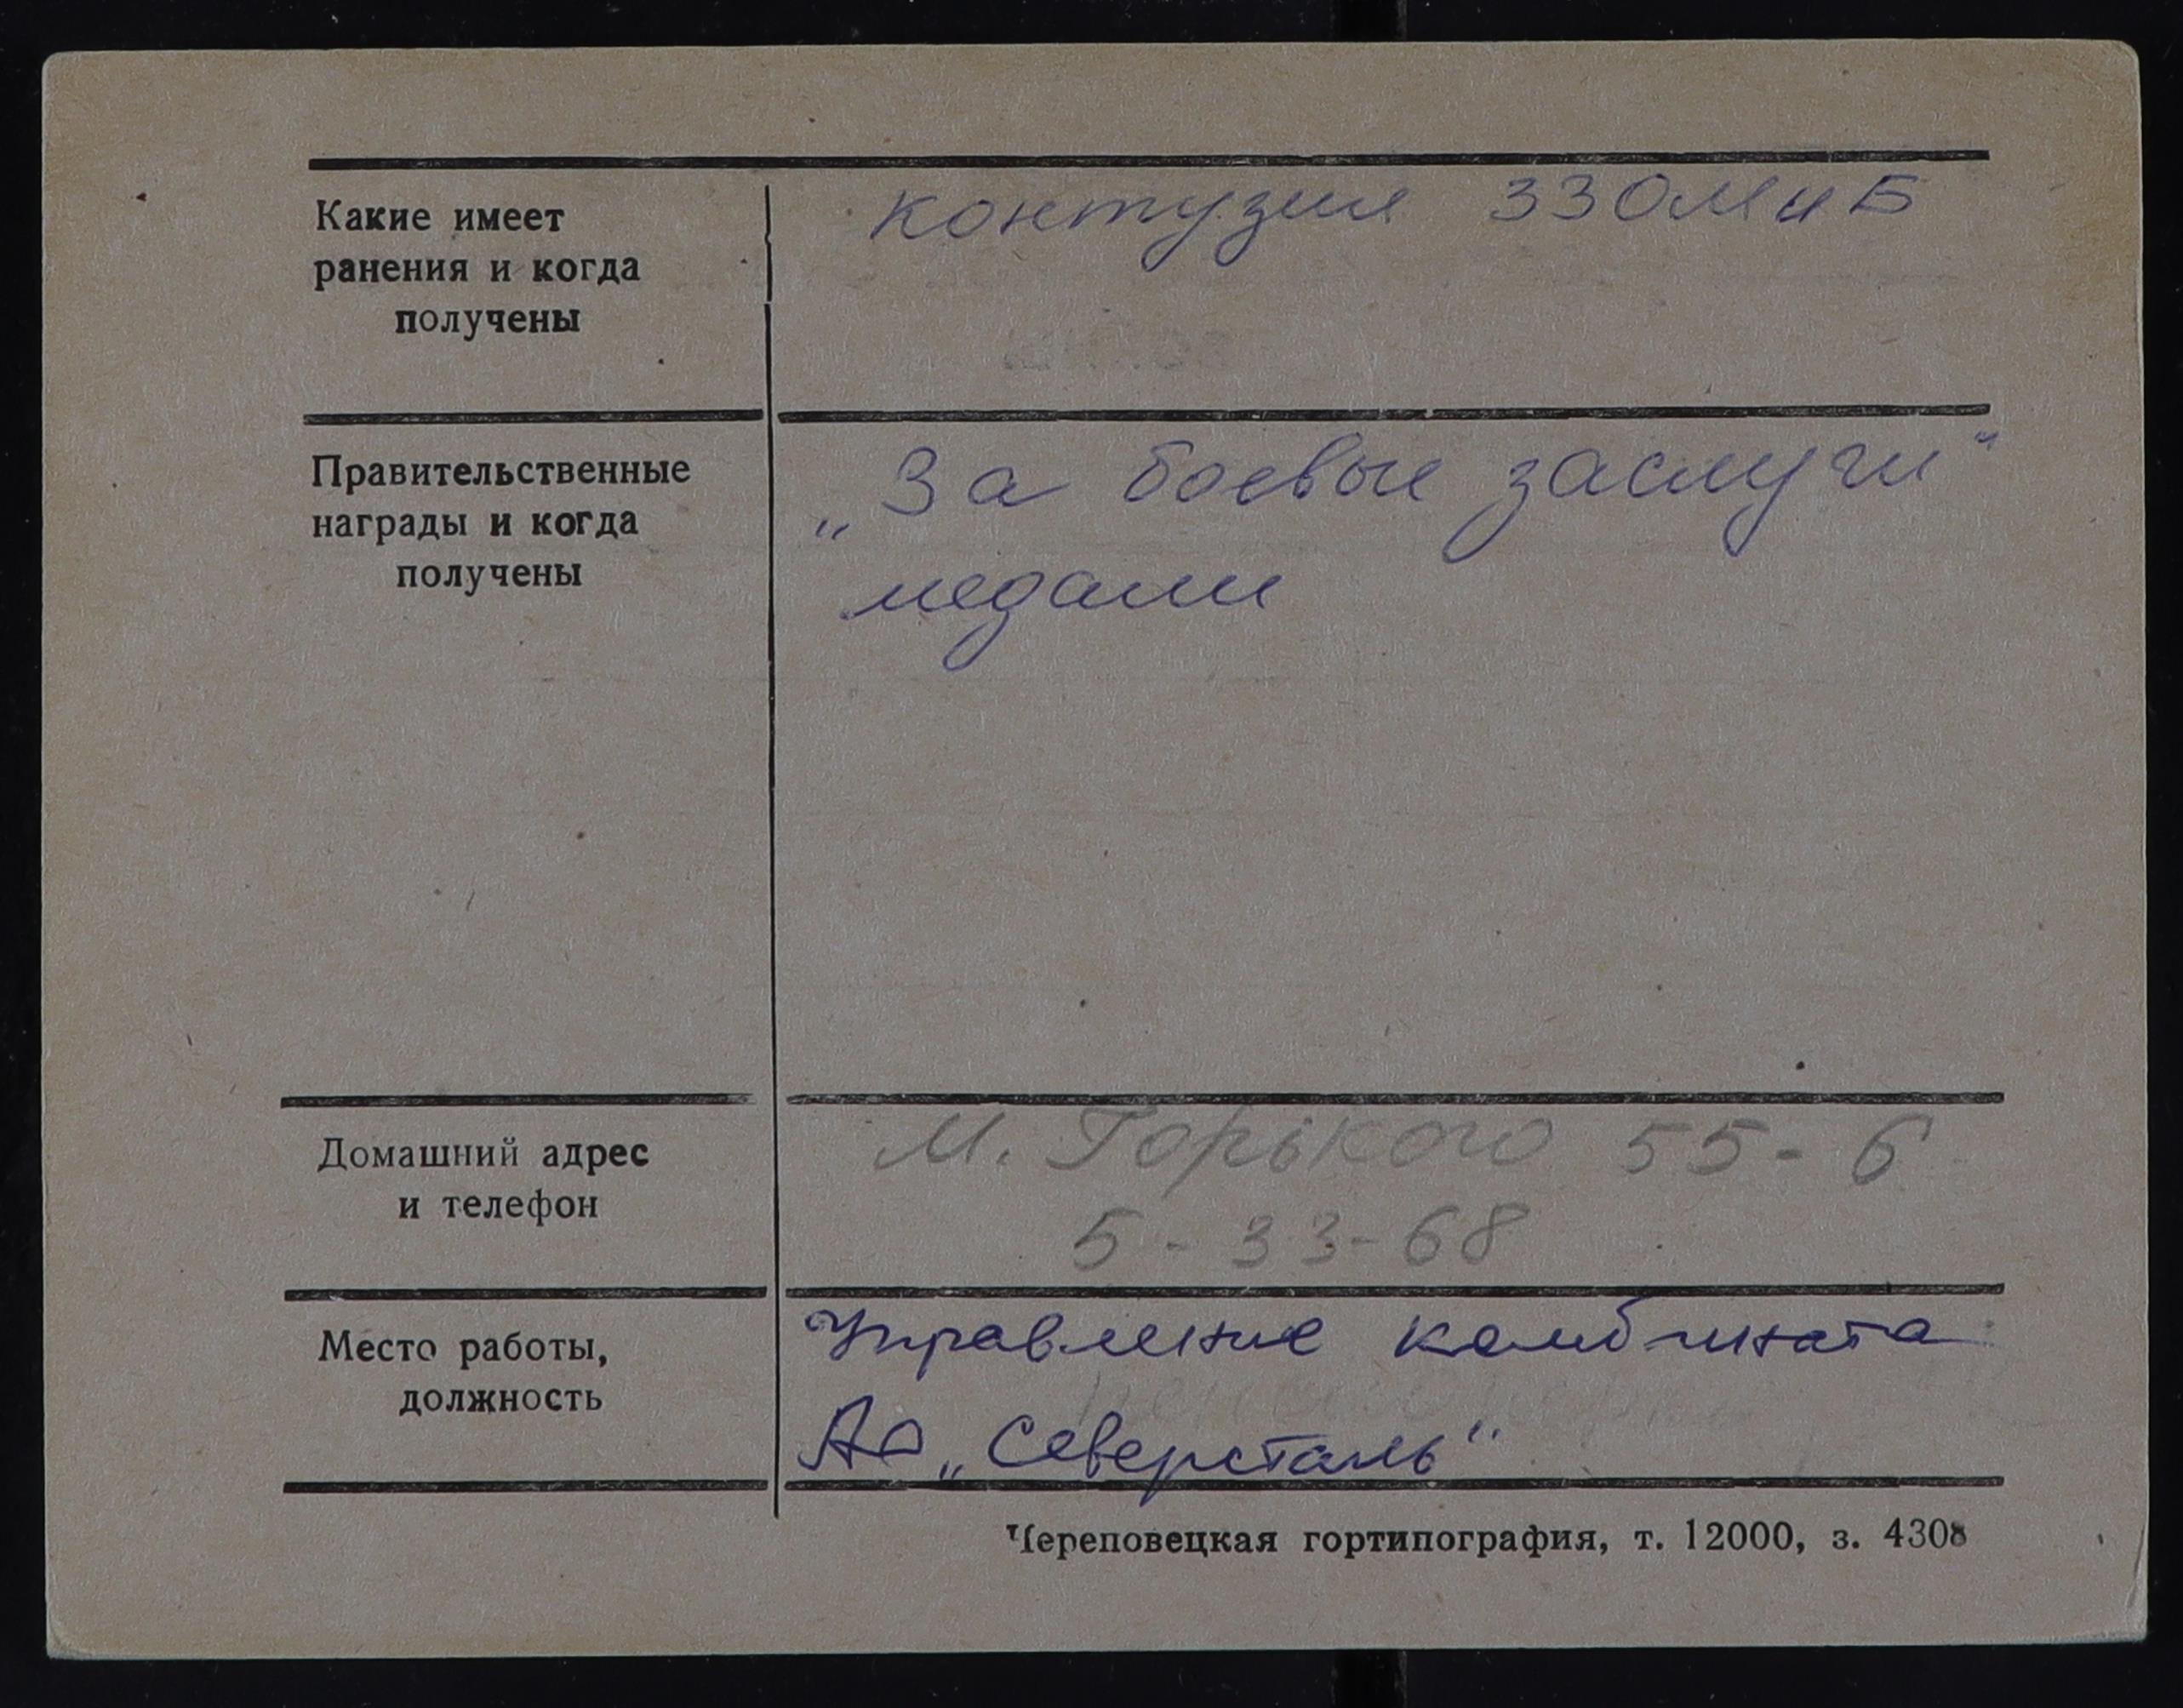 Какие имеет
ранения и когда
получены
контузия 330МиБ
Правительственные
награды и когда
получены
„За боевые заслуги“
медали
Домашний адрес
и телефон
М. Горького 55-6
5-33-68
Место работы,
должность
Управление комбината
АО „Северсталь“
Череповецкая гортипография, т. 12000, з. 4308